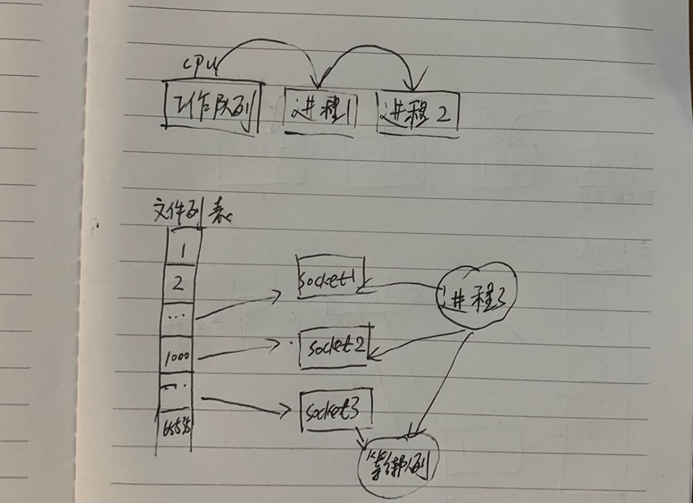 cpu
工作队列 进程1 进程2
文件列表
1
2
...
1000
...
65535
socket1
socket2
socket3
进程3
等待队列